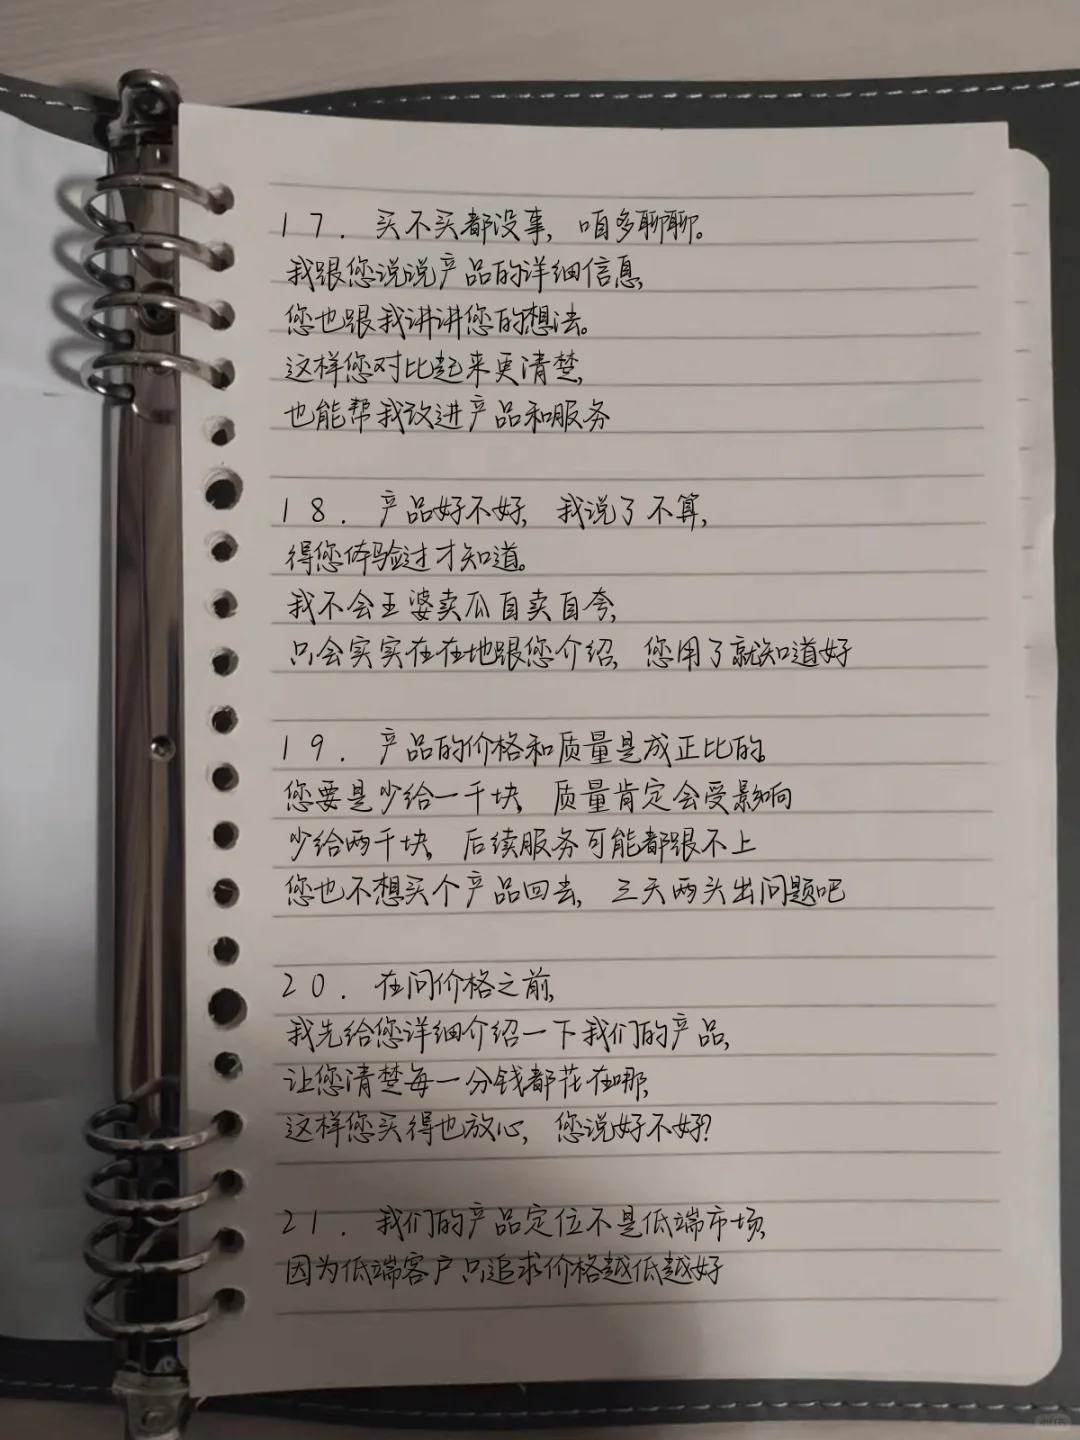 17. 买不买都没事，咱多聊聊。
我跟您说说产品的详细信息，
您也跟我讲讲您的想法。
这样您对比起来更清楚，
也能帮我改进产品和服务
18. 产品好不好，我说了不算，
得您体验过才知道。
我不会王婆卖瓜自卖自夸，
只会实实在在地跟您介绍，您用了就知道好
19. 产品的价格和质量是成正比的。
您要是少给一千块，质量肯定会受影响
少给两千块，后续服务可能都跟不上
您也不想买个产品回去，三天两头出问题吧
20. 在问价格之前，
我先给您详细介绍一下我们的产品，
让您清楚每一分钱都花在哪，
这样您买得也放心，您说好不好？
21. 我们的产品定位不是低端市场，
因为低端客户只追求价格越低越好